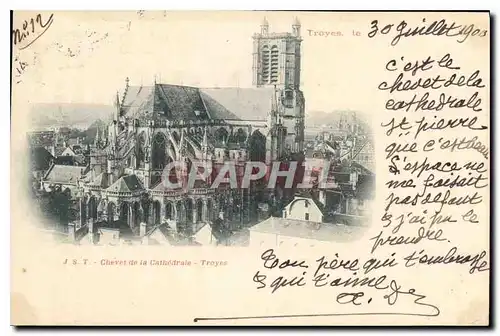 n.12
Troyes, le 30 Juillet 1903
c'est le
chevet de la
cathédrale
St pierre
que c'est
l'espace ne
me faisait
pas défaut
si j'ai pu le
prendre
CPARAMA
J. S. T. - Chevet de la Cathédrale - Troyes
Ton père qui t'embrasse
et qui t'aime